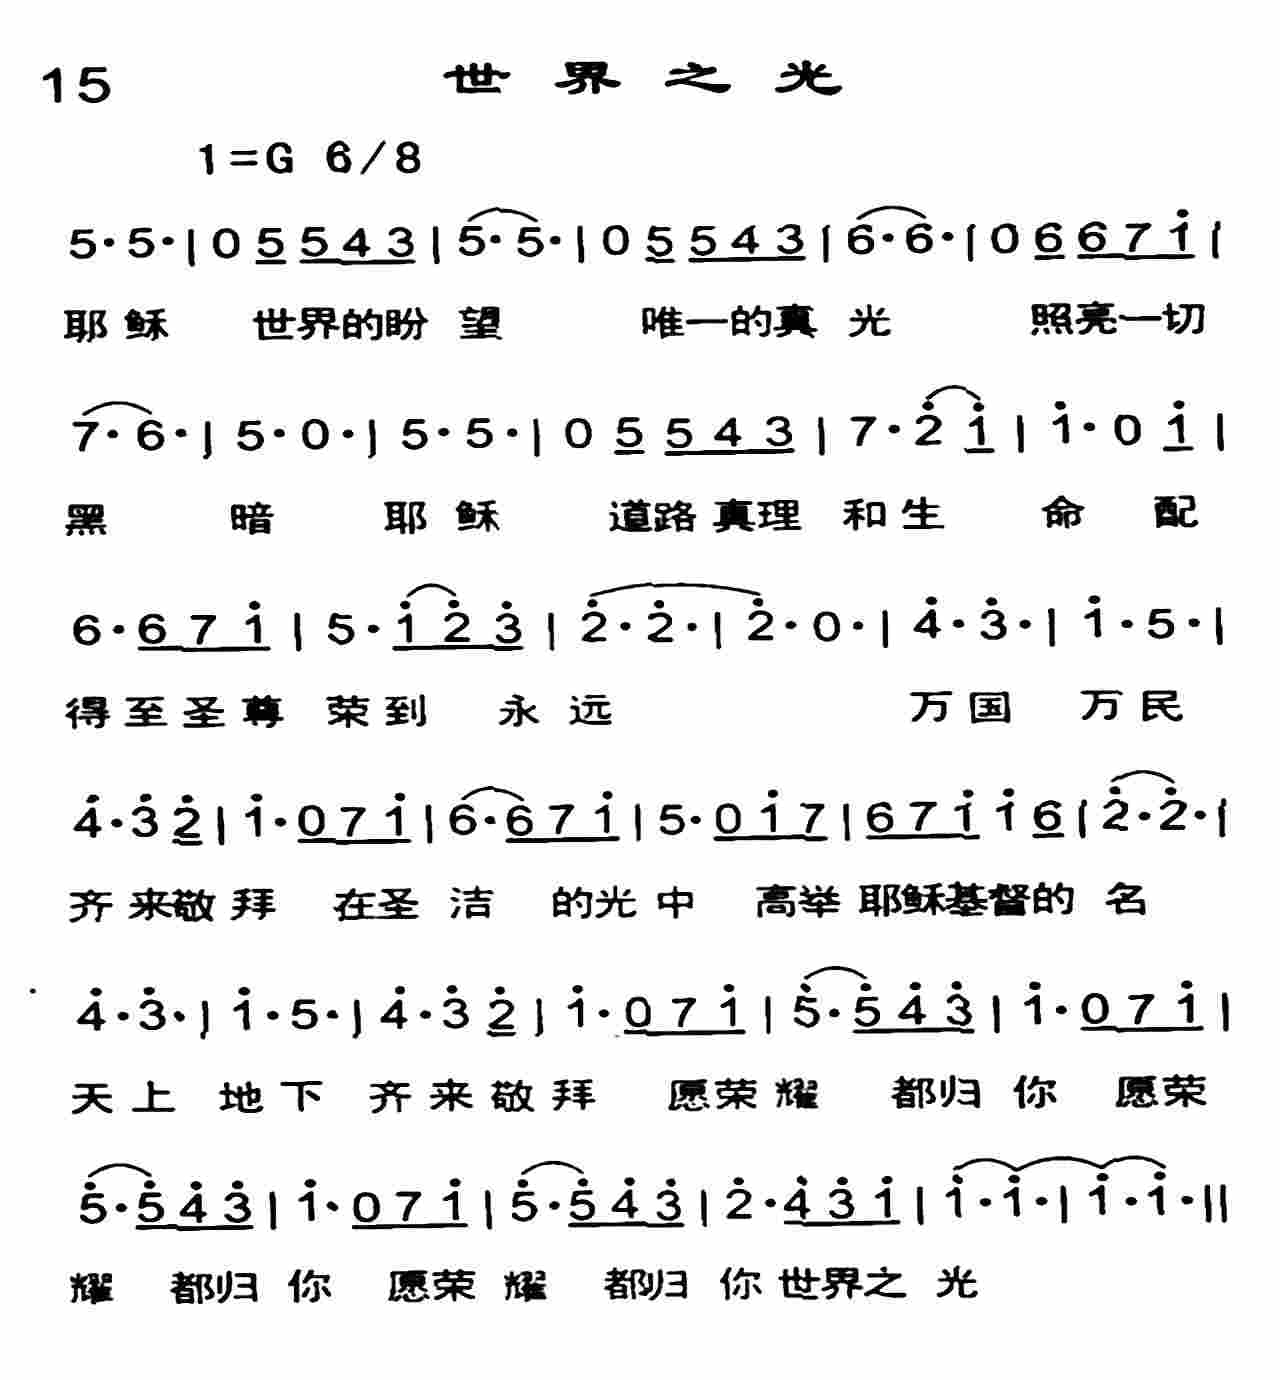 15 世界之光
1=G 6/8
5·5·|0 5 5 4 3|5·5·|0 5 5 4 3|6·6·|0 6 6 7 i|
耶稣 世界的盼 望 唯一的真 光 照亮一切
7·6·|5·0·|5·5·|0 5 5 4 3|7·2̇ i|i·0 i|
黑 暗 耶 稣 道路 真理 和生 命 配
6·6 7 i|5·i 2̇ 3̇|2̇·2̇·|2̇·0·|4̇·3̇·|i·5·|
得至圣尊 荣到 永远 万国 万民
4̇·3̇ 2̇|i·0 7 i|6·6 7 i|5·0 i 7|6 7 i i 6|2̇·2̇·|
齐来敬拜 在圣 洁 的光中 高举 耶稣基督的 名
4̇·3̇·|i·5·|4̇·3̇ 2̇|i·0 7 i|5̇·5̇ 4̇ 3̇|i·0 7 i|
天上 地下 齐来敬拜 愿荣耀 都归 你 愿荣
5̇·5̇ 4̇ 3̇|i·0 7 i|5̇·5̇ 4̇ 3̇|2̇·4̇ 3̇ i|i·i·|i·i·||
耀 都归 你 愿荣 耀 都归 你 世界之 光